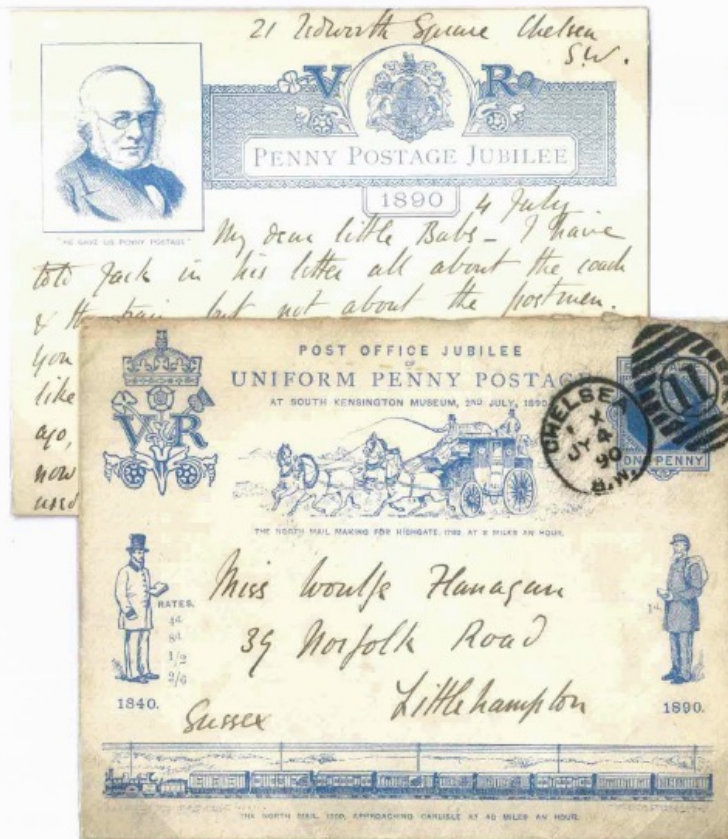 21 Tedworth Square Chelsea
S.W.
V R
PENNY POSTAGE JUBILEE
1890
"HE GAVE US PENNY POSTAGE"
4 July
My dear little Babs - I have
told Jack in his letter all about the coach
& the train but not about the postmen.
you
like
ago,
now
used
POST OFFICE JUBILEE
OF
UNIFORM PENNY POSTAGE
AT SOUTH KENSINGTON MUSEUM, 2ND JULY, 1890
V R
CHELSEA
X
JY 4
90
S.W.
11
ONE PENNY
THE NORTH MAIL MAKING FOR HIGHGATE, 1790, AT 8 MILES AN HOUR.
Miss Woulfe Flanagan
39 Norfolk Road
Littlehampton
Sussex
RATES.
4d
8d
1/2
2/6
1840.
1d
1890.
THE NORTH MAIL, 1890, APPROACHING CARLISLE AT 48 MILES AN HOUR.